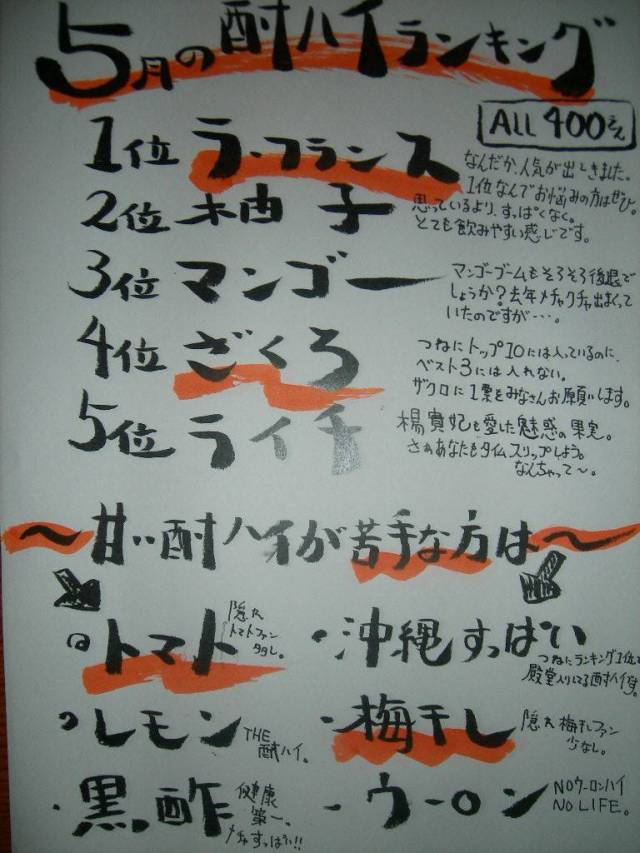 5月の酎ハイランキング
ALL 400えん
1位 ラ・フランス
なんだか、人気が出てきました。
1位なんでお悩みの方はぜひ。
2位 柚子
思っているより、すっぱくなく。
とても飲みやすい感じです。
3位 マンゴー
マンゴーブームもそろそろ後退で
しょうか?去年メチャクチャ出まくって
いたのですが・・・。
4位 ざくろ
つねにトップ10には入っているのに、
ベスト3には入れない。
ザクロに1票をみなさんお願いします。
5位 ライチ
楊貴妃も愛した魅惑の果実。
さぁあなたもタイムスリップしよう。
なんちゃって〜。
〜甘い酎ハイが苦手な方は〜
・トマト
隠れ
トマトファン
多し。
・沖縄すっぱい
つねにランキング1位で
殿堂入りしてる酎ハイです。
・レモン
THE
酎ハイ。
・梅干し
隠れ梅干しファン
少なし。
・黒酢
健康
第一。
メチャすっぱい!!
・ウーロン
NOウーロンハイ
NO LIFE。